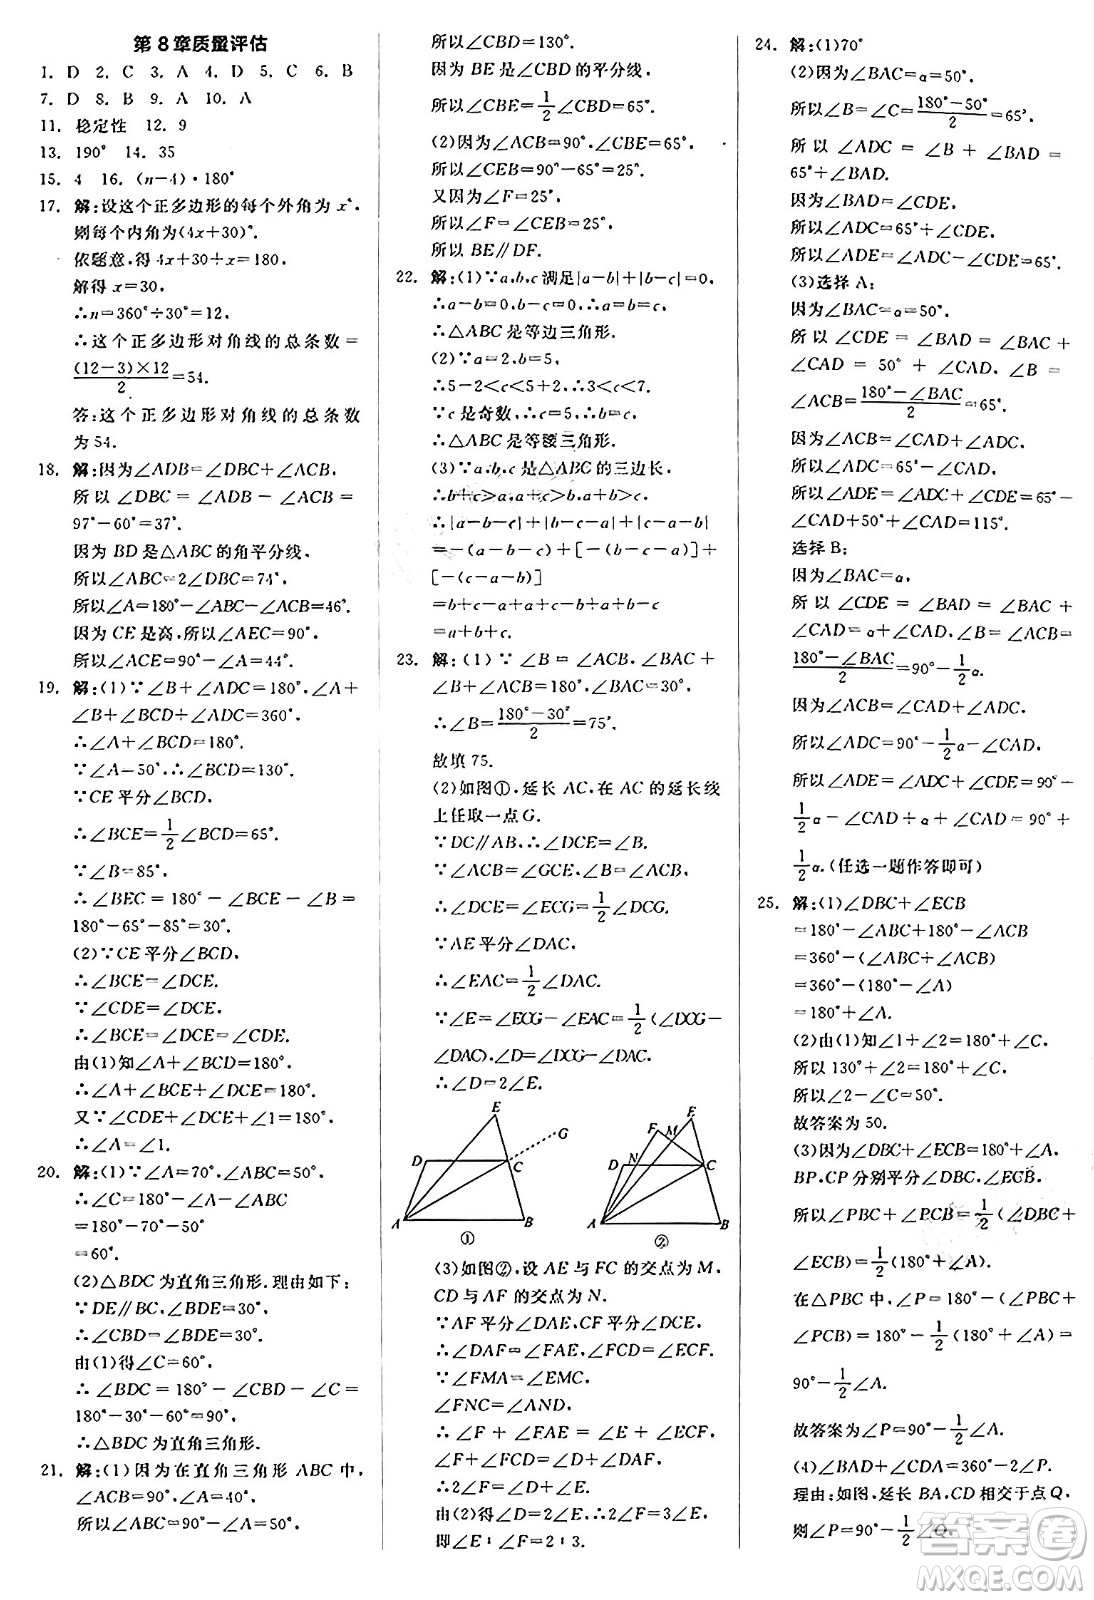 第8章质量评估
1. D 2. C 3. A 4. D 5. C 6. B
7. D 8. B 9. A 10. A
11. 稳定性 12. 9
13. 190° 14. 35
15. 4 16. (n-4)·180°
17. 解:设这个正多边形的每个外角为 x°,
则每个内角为(4x+30)°.
依题意,得 4x+30+x=180,
解得 x=30,
∴n=360°÷30°=12,
∴这个正多边形对角线的总条数=
(12-3)×12/2=54.
答:这个正多边形对角线的总条数
为 54.
18. 解:因为∠ADB=∠DBC+∠ACB,
所以∠DBC=∠ADB-∠ACB=
97°-60°=37°.
因为 BD 是△ABC 的角平分线,
所以∠ABC=2∠DBC=74°,
所以∠A=180°-∠ABC-∠ACB=46°.
因为 CE 是高,所以∠AEC=90°,
所以∠ACE=90°-∠A=44°.
19. 解:(1)∵∠B+∠ADC=180°,∠A+
∠B+∠BCD+∠ADC=360°,
∴∠A+∠BCD=180°.
∵∠A=50°,∴∠BCD=130°.
∵CE 平分∠BCD,
∴∠BCE=1/2∠BCD=65°.
∵∠B=85°,
∴∠BEC=180°-∠BCE-∠B=
180°-65°-85°=30°.
(2)∵CE 平分∠BCD,
∴∠BCE=∠DCE.
∵∠CDE=∠DCE,
∴∠BCE=∠DCE=∠CDE.
由(1)知∠A+∠BCD=180°,
∴∠A+∠CDE+∠DCE=180°.
又∵∠CDE+∠DCE+∠1=180°,
∴∠A=∠1.
20. 解:(1)∵∠A=70°,∠ABC=50°,
∴∠C=180°-∠A-∠ABC
=180°-70°-50°
=60°.
(2)△BDC 为直角三角形.理由如下:
∵DE∥BC,∠BDE=30°,
∴∠CBD=∠BDE=30°.
由(1)得∠C=60°,
∴∠BDC=180°-∠CBD-∠C=
180°-30°-60°=90°,
∴△BDC 为直角三角形.
21. 解:(1)因为在直角三角形 ABC 中,
∠ACB=90°,∠A=40°,
所以∠ABC=90°-∠A=50°,
所以∠CBD=130°.
因为 BE 是∠CBD 的平分线,
所以∠CBE=1/2∠CBD=65°.
(2)因为∠ACB=90°,∠CBE=65°,
所以∠CEB=90°-65°=25°.
又因为∠F=25°,
所以∠F=∠CEB=25°,
所以 BE∥DF.
22. 解:(1)∵a,b,c 满足|a-b|+|b-c|=0,
∴a-b=0,b-c=0,∴a=b=c,
∴△ABC 是等边三角形.
(2)∵a=5,b=2,
∴5-2<c<5+2,∴3<c<7.
∵c 是奇数,∴c=5,∴a=c,
∴△ABC 是等腰三角形.
(3)∵a,b,c 是△ABC 的三边长,
∴b+c>a,a+c>b,a+b>c,
∴|a-b-c|+|b-c-a|+|c-a-b|
=-(a-b-c)+[-(b-c-a)]+
[-(c-a-b)]
=b+c-a+c+a-b+a+b-c
=a+b+c.
23. 解:(1)∵∠B=∠ACB,∠BAC+
∠B+∠ACB=180°,∠BAC=30°,
∴∠B=180°-30°/2=75°.
故填 75.
(2)如图①,延长 AC,在 AC 的延长线
上任取一点 G.
∵DC∥AB,∴∠DCE=∠B.
∵∠ACB=∠GCE,∠B=∠ACB,
∴∠DCE=∠ECG=1/2∠DCG.
∵AE 平分∠DAC,
∴∠EAC=1/2∠DAC.
∵∠E=∠ECG-∠EAC=1/2(∠DCG-
∠DAC),∠D=∠DCG-∠DAC,
∴∠D=2∠E.
E G D C A B
①
E M F D N C A B
②
(3)如图②,设 AE 与 FC 的交点为 M,
CD 与 AF 的交点为 N.
∵AF 平分∠DAE,CF 平分∠DCE,
∴∠DAF=∠FAE,∠FCD=∠ECF.
∵∠FMA=∠EMC,
∠FNC=∠AND,
∴∠F+∠FAE=∠E+∠ECF,
∠F+∠FCD=∠D+∠DAF,
∴2∠F=∠D+∠E.
由(2)得∠D=2∠E,∴2∠F=3∠E,
即∠E∶∠F=2∶3.
24. 解:(1)70°
(2)因为∠BAC=α=50°,
所以∠B=∠C=180°-50°/2=65°,
所以∠ADC=∠B+∠BAD=
65°+∠BAD.
因为∠BAD=∠CDE,
所以∠ADC=65°+∠CDE.
(3)选择 A:
因为∠BAC=α=50°,
所以∠CDE=∠BAD=∠BAC+
∠CAD=50°+∠CAD,∠B=
∠ACB=180°-∠BAC/2=65°,
因为∠ACB=∠CAD+∠ADC,
所以∠ADC=65°-∠CAD,
所以∠ADE=∠ADC+∠CDE=65°-
∠CAD+50°+∠CAD=115°.
选择 B:
因为∠BAC=α,
所以∠CDE=∠BAD=∠BAC+
∠CAD=α+∠CAD,∠B=∠ACB=
180°-∠BAC/2=90°-1/2α.
因为∠ACB=∠CAD+∠ADC,
所以∠ADC=90°-1/2α-∠CAD,
所以∠ADE=∠ADC+∠CDE=90°-
1/2α-∠CAD+α+∠CAD=90°+
1/2α.(任选一题作答即可)
25. 解:(1)∠DBC+∠ECB
=180°-∠ABC+180°-∠ACB
=360°-(∠ABC+∠ACB)
=360°-(180°-∠A)
=180°+∠A.
(2)由(1)知∠1+∠2=180°+∠C,
所以 130°+∠2=180°+∠C,
所以∠2-∠C=50°.
故答案为 50.
(3)因为∠DBC+∠ECB=180°+∠A,
BP,CP 分别平分∠DBC,∠ECB,
所以∠PBC+∠PCB=1/2(∠DBC+
∠ECB)=1/2(180°+∠A),
在△PBC 中,∠P=180°-(∠PBC+
∠PCB)=180°-1/2(180°+∠A)=
90°-1/2∠A.
故答案为∠P=90°-1/2∠A.
(4)∠BAD+∠CDA=360°-2∠P.
理由:如图,延长 BA,CD 相交于点 Q,
则∠P=90°-1/2∠Q,
答案卷
MXQE.COM